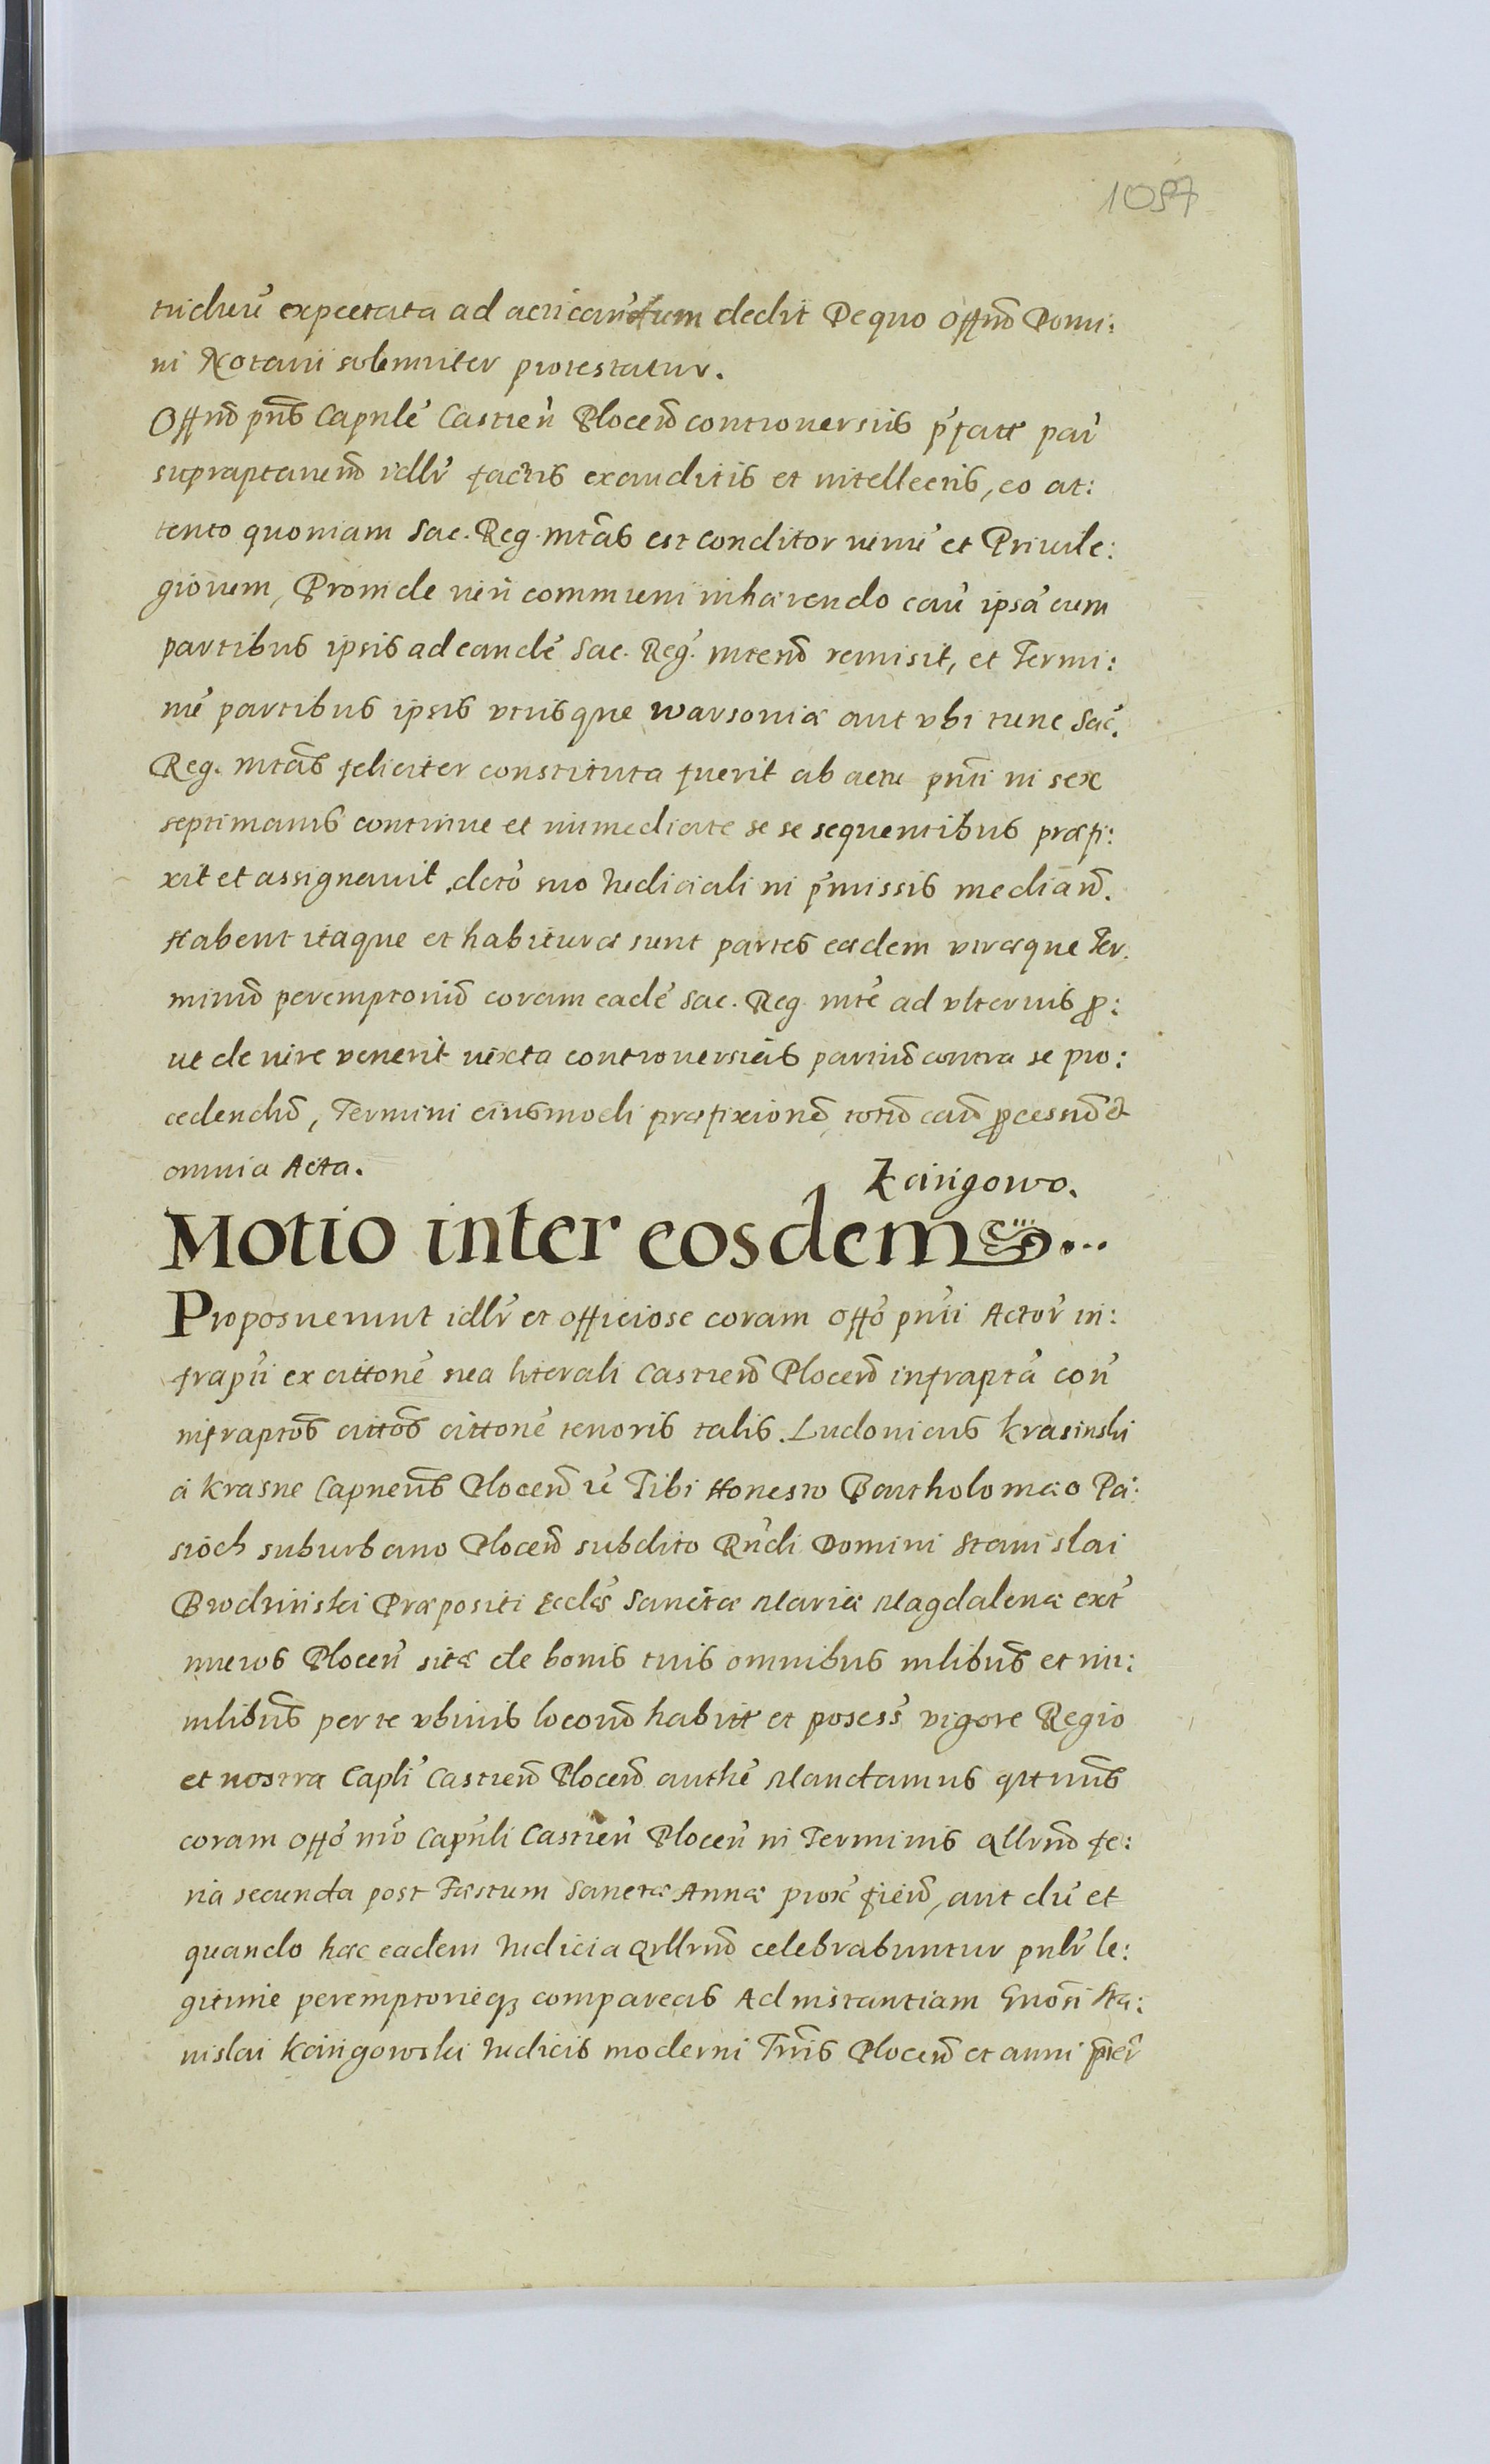 1097
triduũ expectata ad acticandum dedit De quo Offm̃ Domi:
ni Notarii solemniter protestatur.
Offm̃ pñs Capnle᷑ Castren̄ Plocen̄ controuersiis p̃fatt par̃
suprapta​rum idlr̃ factis exauditis et intellectis, eo at:
tento quoniam Sac. Reg. mtãs est conditor iuriũ et Priuile:
giorum, Proinde iuri communi inhærendo cau᷑ ipsã cum
partibus ipsis ad eandẽ Sac. Reg᷑. mtem̃ remisit, et Termi:
nũ partibus ipsis vtrisque Warsouiæ aut vbi tunc Sac᷑.
Reg. mtãs feliciter constituta fuerit ab actu pñti in sex
septimanis continue et immediate se se sequentibus præfi:
xit et assignauit, dcto᷑ suo Iudiciali in p̃missis median̄.
Habent itaque et habituræ sunt partes eædem vtræque Ter:
minum̃ peremptoriũ coram eadẽ Sac. Reg. mtẽ ad vlterius ꝓ:
ut de iure venerit iuxta controuersias partiũ contra se pro:
cedendũ, Termini eiusmodi præfixionẽ, totũ cau᷑ ꝓcessũ et
omnia Acta.
Kąrigowo.
Motio inter eosdem ...
Proposuerunt idlr̃ et officiose coram Offo᷑ pñti Actor᷑ in:
frapti᷑ ex cittonẽ sua literali Castren̄ Plocen̄ infraptã con᷑
infraptõs cittõs cittonẽ tenoris talis. Ludouicus Krasinski
a Krasne Capneũs Plocen̄ ꝛc᷑ Tibi Honesto Bartholomæo Pa:
sioch suburbano Plocen̄ subdito Rñdi Domini Stanislai
Brodziński Præpositi Eccles᷑ Sanctæ Mariæ Magdalenæ ext᷑
muros Plocen̄ sitæ de bonis tuis omnibus mlibũs et im:
mlibũs per te vbiuis locorũ habitt et posess᷑ vigore Regio
et nostra Capli᷑ Castren̄ Plocen̄ authẽ Mandamus qtnũs
coram Offo᷑ nr̃o Capnli᷑ Castren̄ Plocen̄ in Terminis qllrũ fe:
ria secunda post Fæstum Sanctæ Annæ prox᷑ fien̄, aut dũ et
quando hæc eadem Iudicia qrllrũ celebrabuntur pnlr̃ le:
gitime peremptorieqꝫ compareas Ad instantiam Gñosi Sta:
nislai Kąrigowski Iudicis moderni Trr̃is Plocen̄ et anni p̃ter᷑